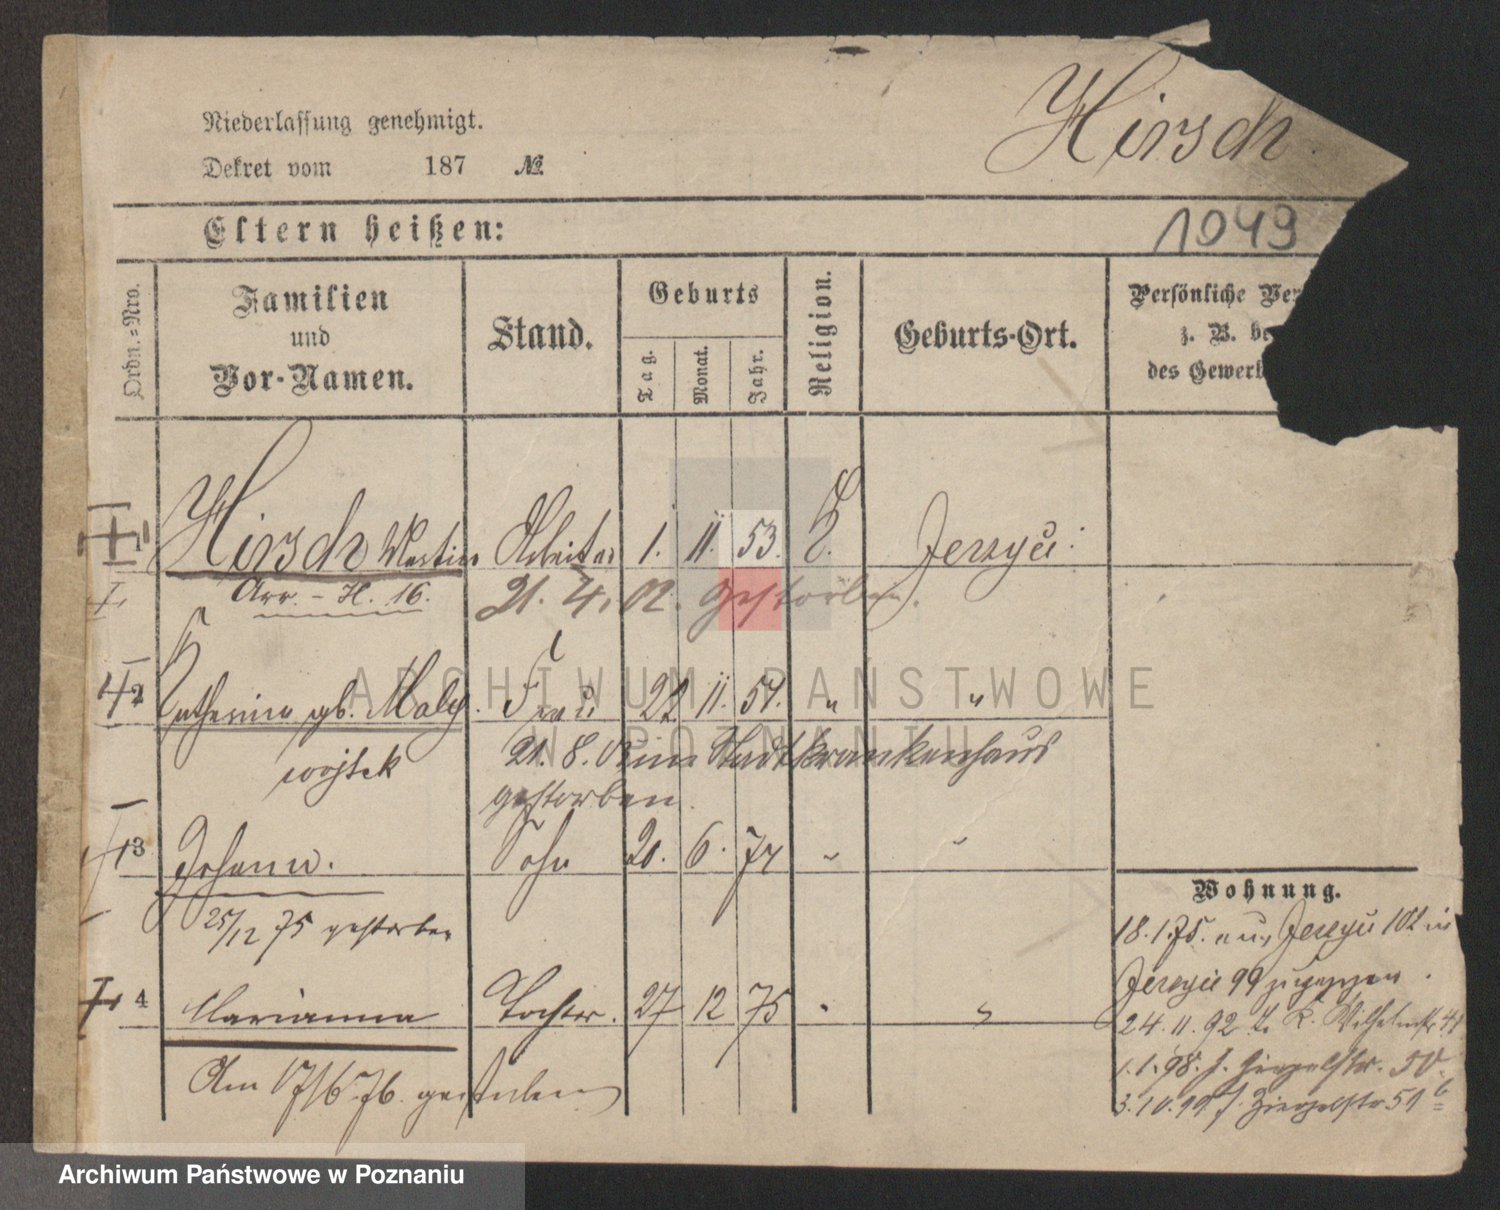 Hirsch
Niederlassung genehmigt.
Dekret vom 187 №
Eltern heißen:
1049
Ordn.-Nro.
Familien
und
Vor-Namen.
Stand.
Geburts
Tag.
Monat.
Jahr.
Religion.
Geburts-Ort.
Persönliche Ver
z. B. be
des Gewerb
1 Hirsch Martin Arbeiter 1. 11. 53. K. Jerzyce
Arr. - H. 16.
21. 4. 02. gestorben.
2 Katharina gb. Maly- Frau 22 11. 51. " "
wojtek
21. 8. im Stadtkrankenhaus
gestorben.
3 Johann. Sohn 20. 6. 74 " "
25/12 75 gestorben
4 Marianna Tochter. 27 12 75 " "
Am 17/6.76. gestorben
Wohnung.
18.1.75. aus Jerzyce 102 in
Jerzyce 99 zugezogen.
24.11.92. Wilhelmstr. 41
1.1.98. Ziegelstr. 50
3.10.99 Ziegelstr 51 b
ARCHIWUM PAŃSTWOWE
W POZNANIU
Archiwum Państwowe w Poznaniu